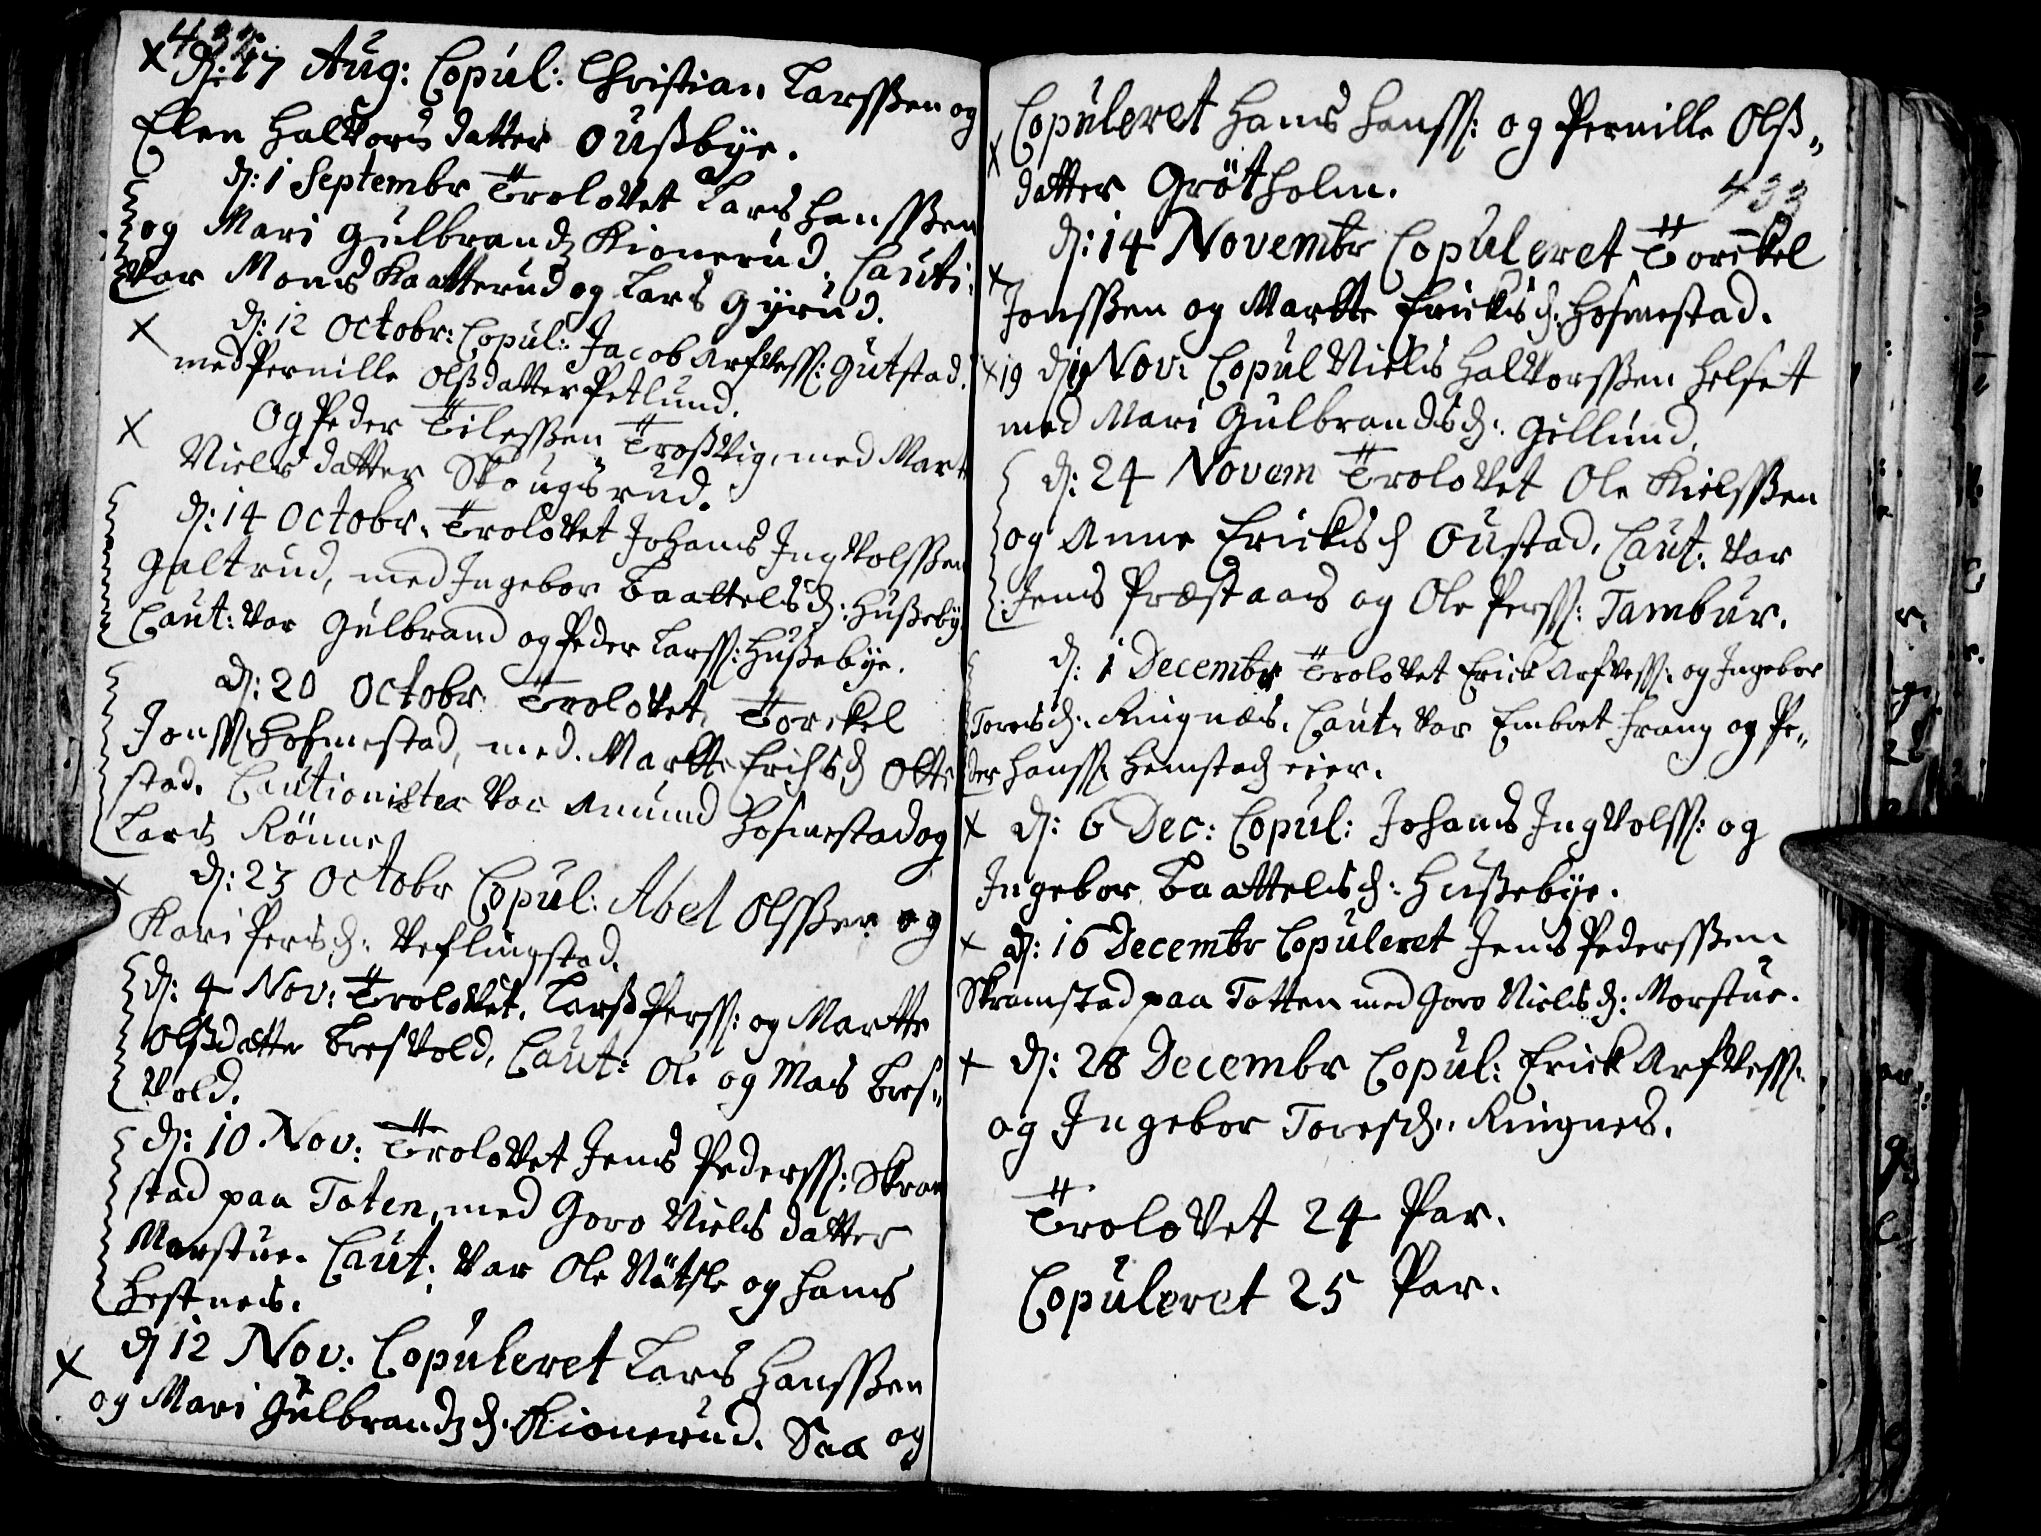 432
x d: 17 Aug: Copul: Christian Larsßen og
Elen Halvors datter Oußbye.
d: 1 Septembr Trolovet Lars Hansßen
og Mari Gulbrandz Kionerud, Cauti:
var Mons Kaatterud og Lars Gyrud.
x d: 12 Octobr: Copul: Jacob Arfvess: Gutstad.
med Pernille Olßdatter Petlund.
x Og Peder Tilesßen Troßvig, med Mart
Niels datter Skougsrud.
d: 14 Octobr. Trolovet Johans Ingvolsßen
Galtrud, med Ingebor Baattelsd: Hußeby
Caut: var Gulbrand og Peder Larss: Hußebye.
d: 20 Octobr Trolovet, Torckel
Jonss: Hofmestad, med Martte Erichsd Olte
stad. Cautionister var Amund Hofmestad og
Lars Rönne
x d: 23 Octobr Copul: Abel Olsßen og
Kari Persd: Veflingstad.
d: 4 Nov: Trolovet, Larß Perss: og Martte
Olßdatter Bresvold, Caut: Ole og Mas Bres-
vold.
d: 10 Nov: Trolovet Jens Pederss: Skram
stad paa Toten, med Goro Niels datter
Morstue. Caut: var Ole Nötsle og Hans
Hestnes.
x d 12 Nov: Copuleret Lars Hansßen
og Mari Gulbrandzd. Kionerud. Saa og
x Copuleret Hans Hanss: og Pernille Olß-
datter Grötholm.
433
x d: 14 Novembr Copuleret Torckel
Jonsßen og Martte Ericksd: Hofmestad.
x 19 d: 19 Nov: Copul Niels Halvorsßen Helset
med Mari Gulbrandsd: Gillund.
d: 24 Novem Trolovet Ole Kielsßen
og Anne Ericksd Oustad, Caut: var
Jens Præstaas og Ole Perss: Tambur.
d: 1 Decembr Trolovet Erick Arfvess: og Ingebor
Toresd: Ringnæs. Caut: var Embret Frang og Pe-
der Hanss Hemstad eier.
x d: 6 Dec: Copul: Johans Ingvolss: og
Ingebor Baattelsd: Hußebye.
x d: 16 Decembr Copuleret Jens Pedersßen
Skramstad paa Totten med Goro Nielsd: Morstue.
x d: 28 Decembr Copul: Erick Arfvess:
og Ingebor Toresd: Ringnes.
Trolovet 24 Par.
Copuleret 25 Par.